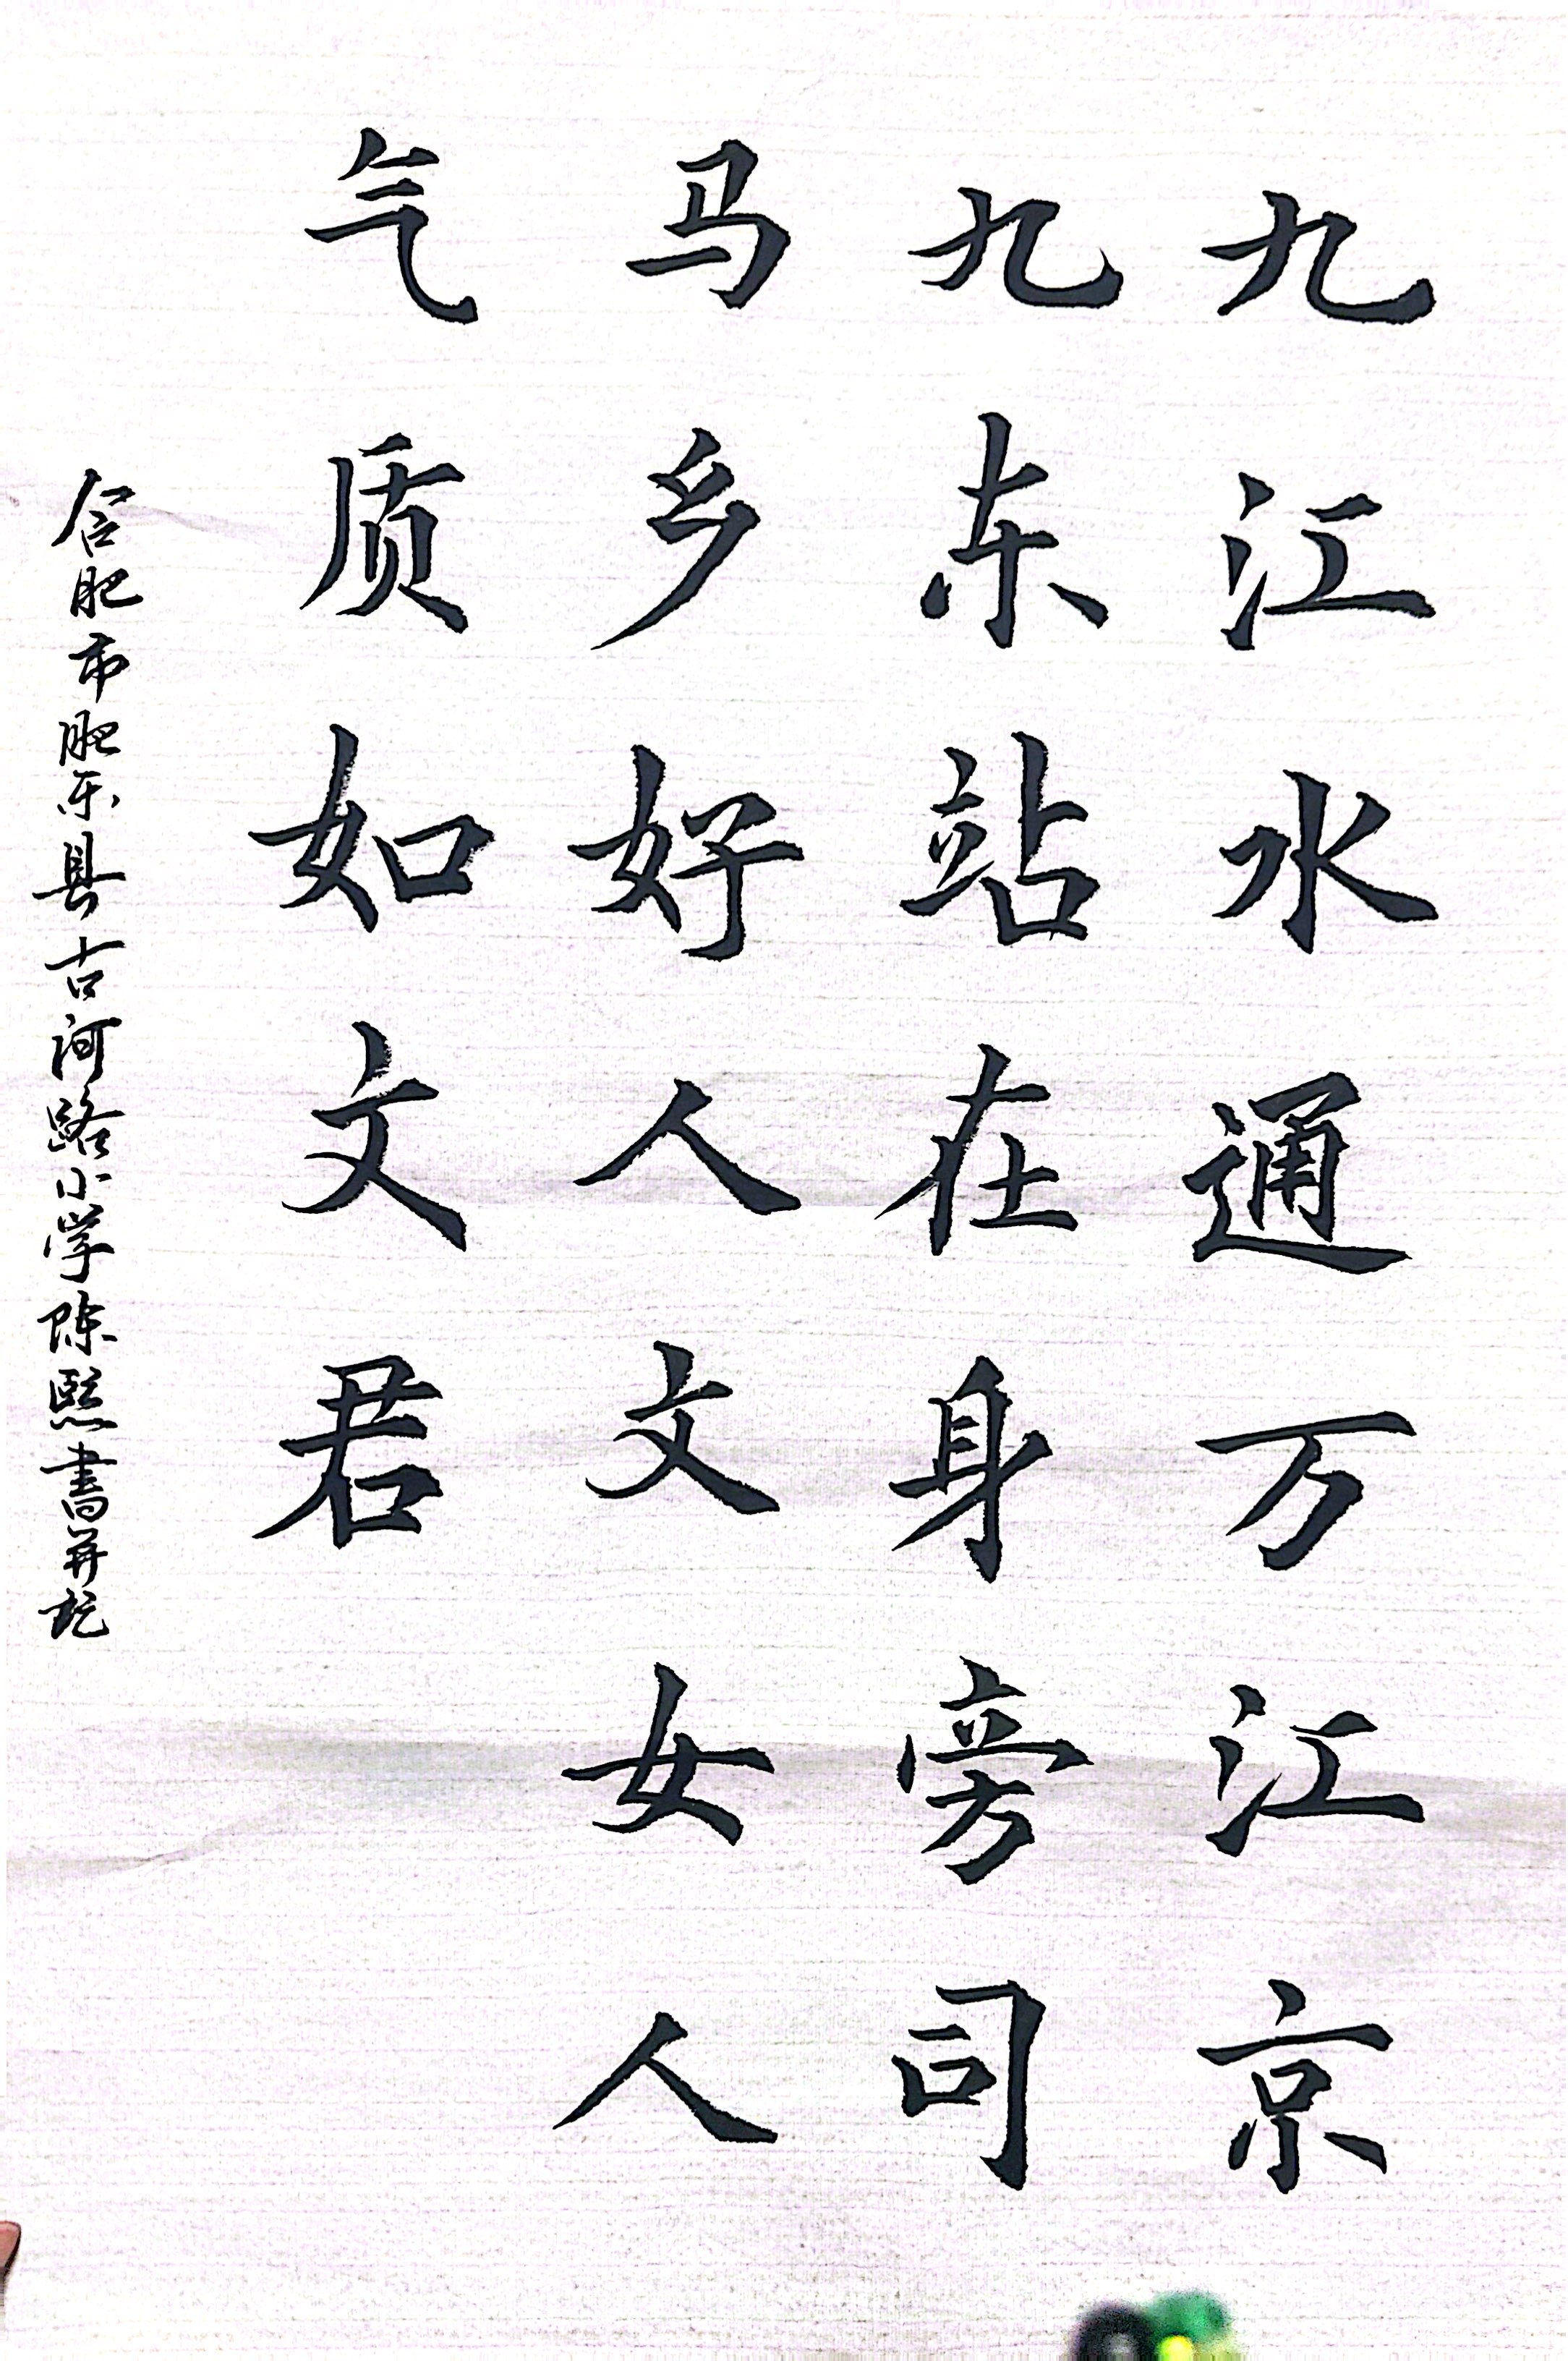 九江水通万江京
九东站在身旁司
马乡好人文女人
气质如文君
合肥市肥东县古河路小学陈熙書并记